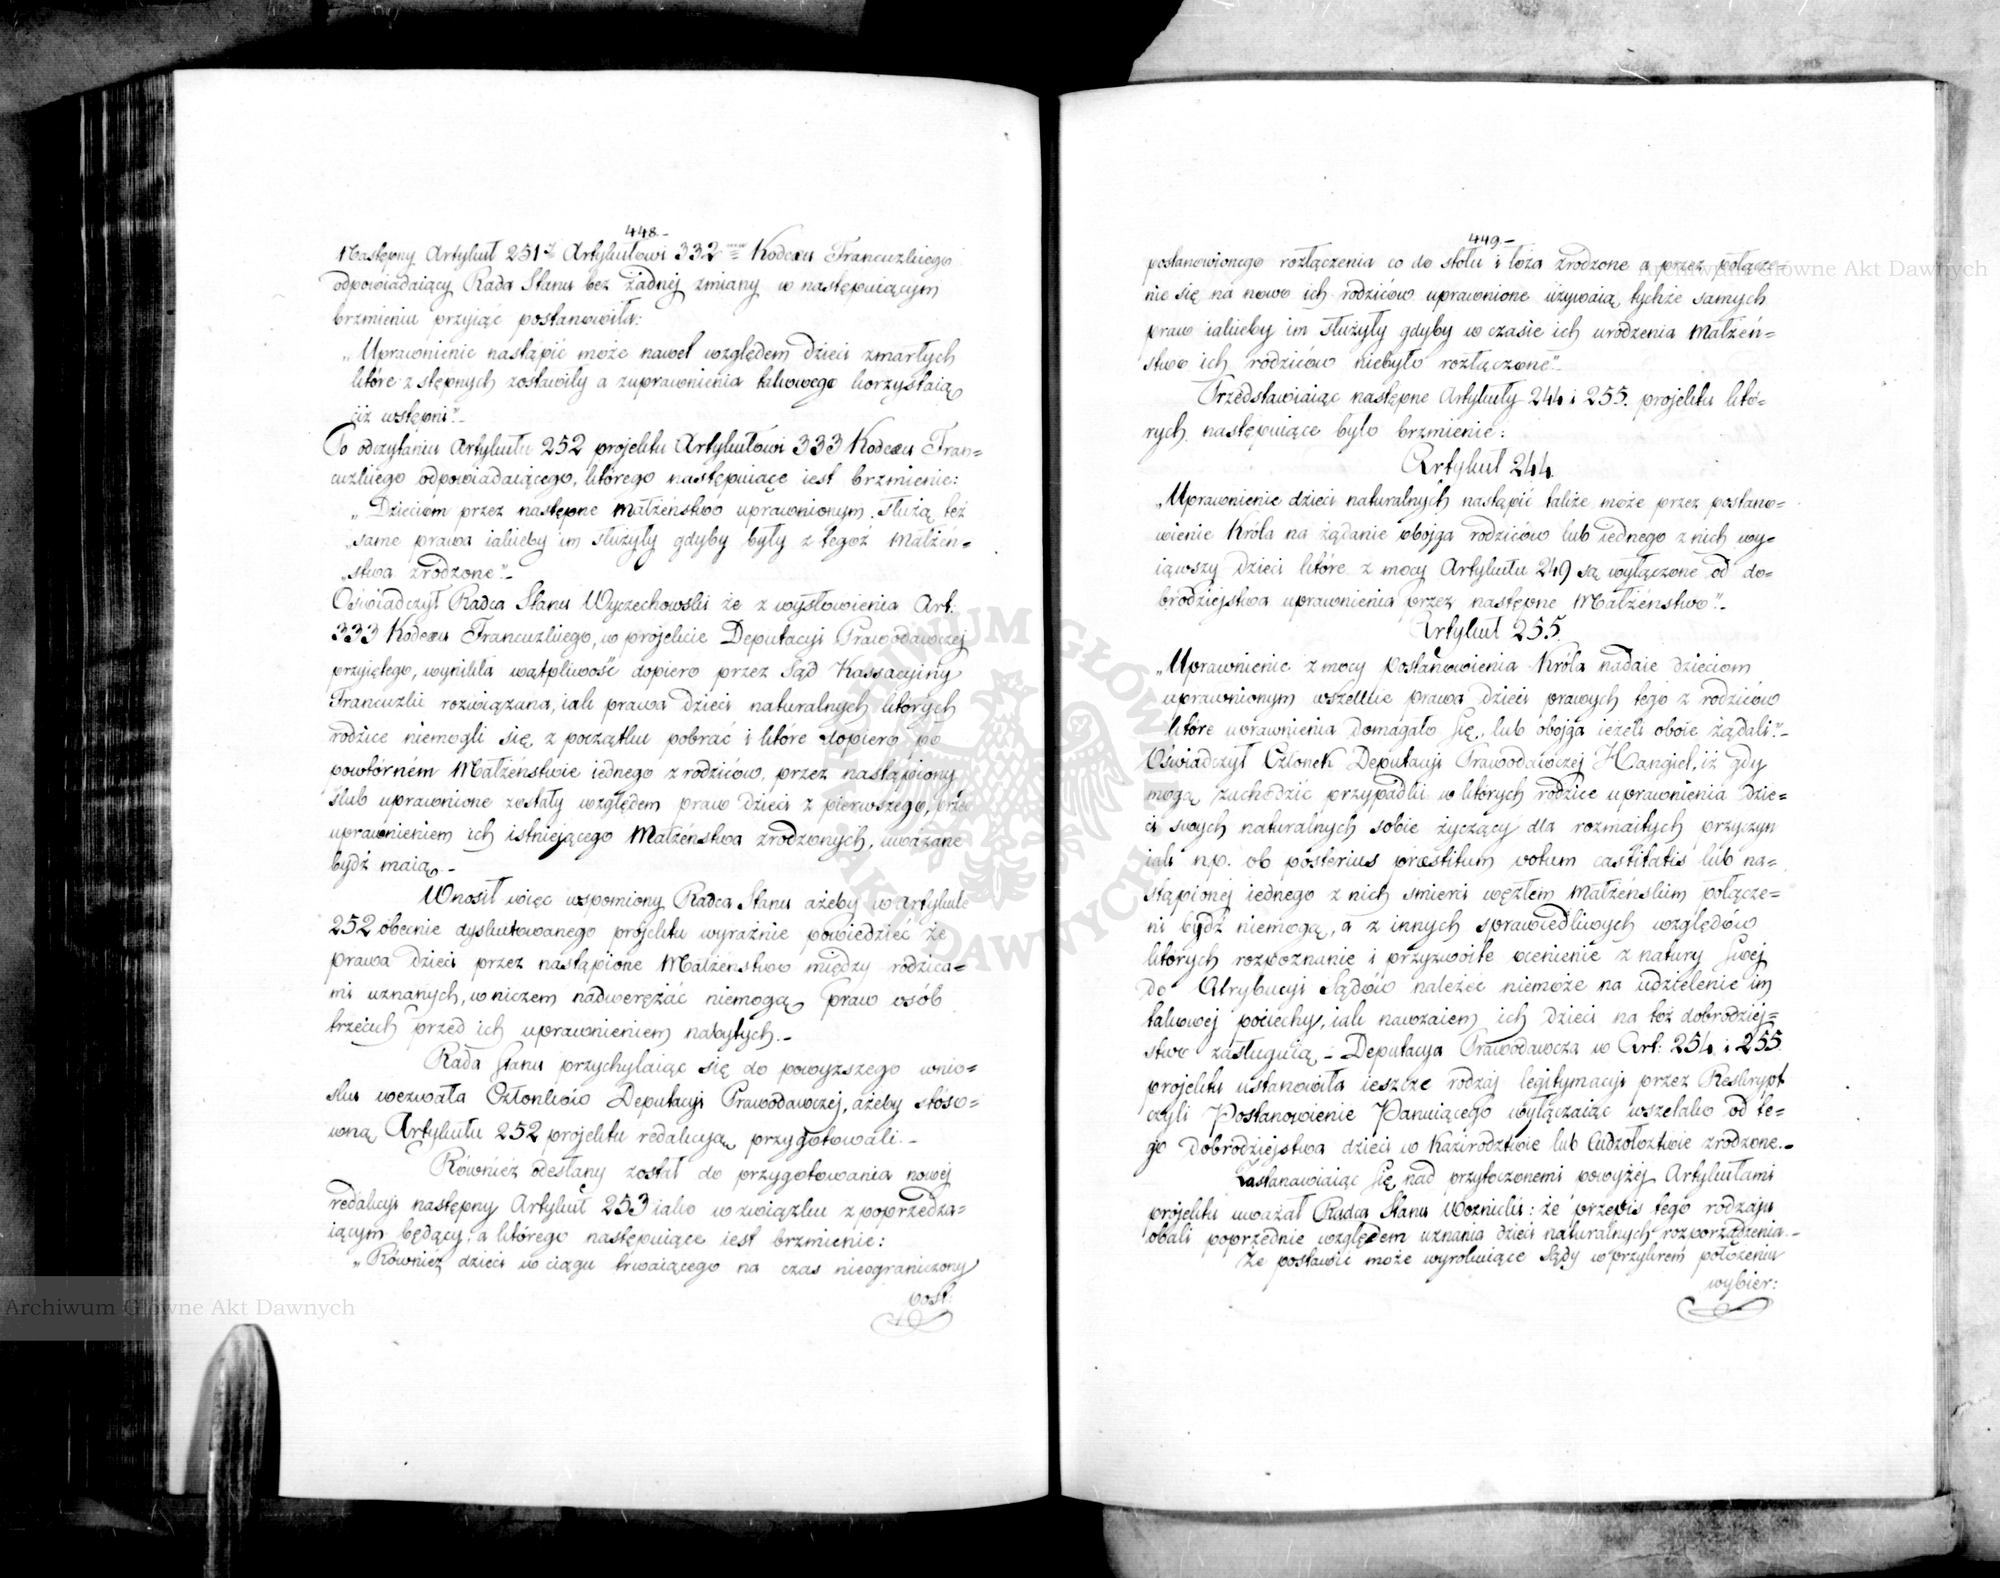 448.
Następny Artykuł 251szy Artykułowi 332mu Kodexu Francuzkiego
odpowiadaiący Rada Stanu bez żadnéj zmiany w następuiącym
brzmieniu przyiąc postanowiła:
„Uprawnienie nastąpić może nawet względem dzieci zmarłych
które zstępnych zostawiły a z uprawnienia takowego korzystaią
ciż wstępni”.
Po odczytaniu Artykułu 252 projektu Artykułowi 333 Kodexu Fran=
cuzkiego odpowiadaiącego, którego następuiące iest brzmienie:
„Dzieciom przez następne Małżeństwo uprawnionym służą też
„same prawa iakieby im służyły gdyby były z tegoż Małżen=
„stwa zrodzone”.
Oświadczył Radca Stanu Wyczechowski że z wysłowienia Art:
333 Kodexu Francuzkiego, w projekcie Deputacyi Prawodawczej
przyiętego, wynikła wątpliwość dopiero przez Sąd Kassacyiny
Francuzki rozwiązana, iak prawa dzieci naturalnych których
rodzice niemogli się z początku pobrać i które dopiero po
powtórném Małżeństwie iednego z rodziców, przez nastąpiony
ślub uprawnione zostały względem praw dzieci z pierwszego, przed
uprawnieniem ich istniejącego Małżeństwa zrodzonych, uważane
bydź maią.
Wnosił więc wspomiony Radca Stanu ażeby w Artykule
252 obecnie dyskutowanego projektu wyraźnie powiedzieć że
prawa dzieci przez nastąpione Małżenstwo między rodzica=
mi uznanych, w niczem nadwerężać niemogą praw osób
trzecich przed ich uprawnieniem nabytych.
Rada Stanu przychylaiąc się do powyższego wnio=
sku wezwała Członków Deputacyi Prawodawczej, ażeby stóso=
wną Artykułu 252 projektu redakcyą przygotowali.
Również odesłany został do przygotowania nowej
redakcyi następny Artykuł 253 iako w związku z poprzedza=
iącym będący, a którego następuiące iest brzmienie:
„Również dzieci w ciągu trwaiącego na czas nieograniczony
post:
449.
postanowionego rozłączenia co do stołu i łoża zrodzone a przez połącze=
nie się na nowo ich rodziców uprawnione używaią tychże samych
praw iakieby im służyły gdyby w czasie ich urodzenia Małżeń=
stwo ich rodziców niebyło rozłączone”.
Przedstawiaiąc następne Artykuły 244 i 255. projektu któ=
rych następuiące było brzmienie:
Artykuł 244
„Uprawnienie dzieci naturalnych nastąpić także może przez postano=
wienie Króla na żądanie obojga rodziców lub iednego z nich wy=
iąwszy dzieci które z mocy Artykułu 249 są wyłączone od do=
brodziejstwa uprawnienia przez następne Małżeństwo”.
Artykuł 255.
„Uprawnienie z mocy Postanowienia Króla nadaie dzieciom
uprawnionym wszelkie prawa dzieci prawych tego z rodziców
które uprawnienia domagało się, lub obojga ieżeli oboie żądali”.
Oświadczył Członek Deputacyi Prawodawczej Hangiel, iż gdy
mogą zachodzić przypadki w których rodzice uprawnienia dzie=
ci swych naturalnych sobie życzący dla rozmaitych przyczyn
iak n.p. ob posterius præstitum votum castitatis lub na=
stąpionej iednego z nich śmierci węzłem Małżeńskim połącze=
ni bydź niemogą, a z innych sprawiedliwych względów
których rozpoznanie i przyzwoite ocenienie z natury swej
do Atrybucyi Sądów należeć niemoże na udzielenie im
takowej pociechy, iak nawzaiem ich dzieci na toż dobrodziej=
stwo zasługuią, – Deputacya Prawodawcza w Art: 254 i 255
projektu ustanowiła ieszcze rodzaj legitymacyi przez Reskrypt
czyli Postanowienie Panuiącego wyłączaiąc wszelako od te=
go Dobrodziejstwa dzieci w Kazirodztwie lub Cudzołoztwie zrodzone.
Zastanawiaiąc się nad przytoczonemi powyżéj Artykułami
projektu uważał Radca Stanu Woznicki: że przepis tego rodzaju
obali poprzednie względem uznania dzieci naturalnych rozporządzenia.
Że postawić może wyrokuiące Sądy w przykrem położeniu
wybier:
Archiwum Główne Akt Dawnych
Archiwum Główne Akt Dawnych
ARCHIWUM GŁÓWNE AKT DAWNYCH